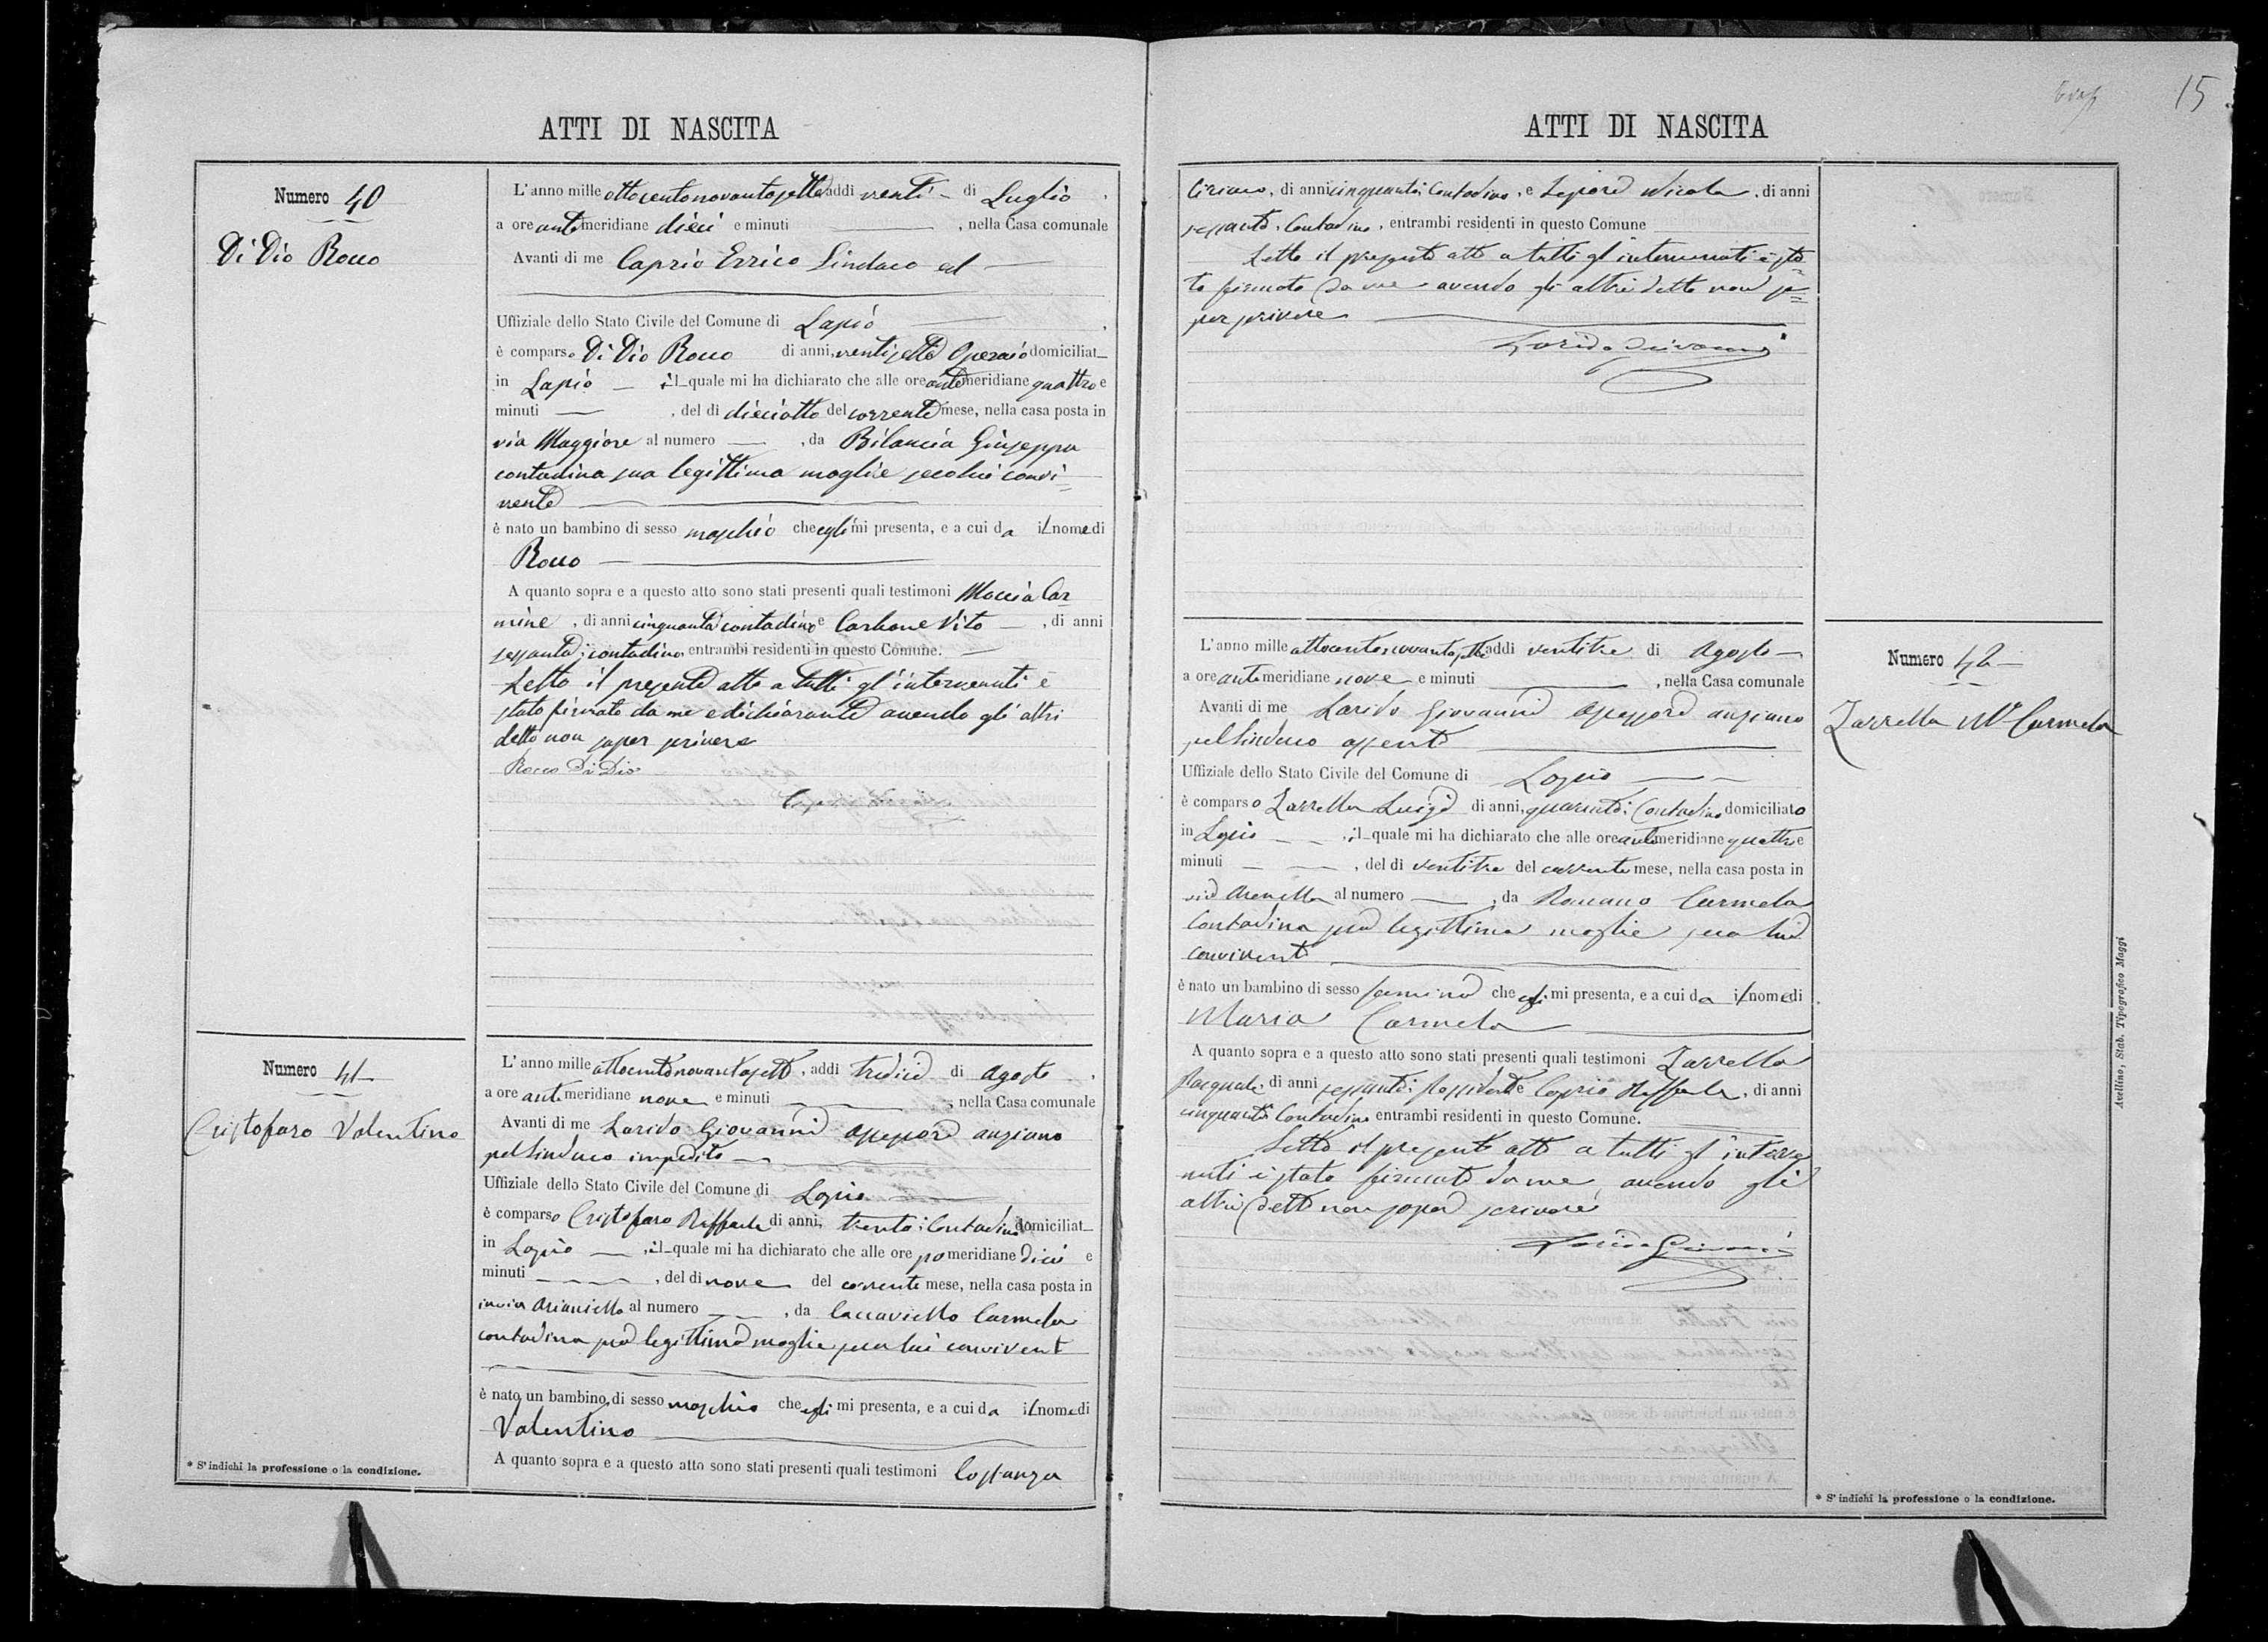 15
ATTI DI NASCITA
Numero 40
Di Dio Rocco
L'anno mille ottocentonovantasette addi venti di Luglio,
a ore antimeridiane dieci e minuti , nella Casa comunale
Avanti di me Caprio Errico Sindaco ed
Uffiziale dello Stato Civile del Comune di Lapio
è comparso Di Dio Rocco di anni, ventisette Operaio domiciliat
in Lapio il quale mi ha dichiarato che alle ore antimeridiane quattro e
minuti , del dì dieciotto del corrente mese, nella casa posta in
via Maggiore al numero , da Bilancia Giuseppa
contadina sua legittima moglie secolui convi=
vente
è nato un bambino di sesso maschio che egli mi presenta, e a cui da il nome di
Rocco
A quanto sopra e a questo atto sono stati presenti quali testimoni Moccia Car
mine, di anni cinquanta contadino e Carbone Vito , di anni
sessanta; contadino entrambi residenti in questo Comune.
Letto il presente atto a tutti gl'intervenuti è
stato firmato da me e dichiarante avendo gli altri
detto non saper scrivere
Rocco Di Dio
Numero 41
Cristofaro Valentino
L'anno mille ottocentonovantasette, addi tredici di Agosto,
a ore antimeridiane nove e minuti , nella Casa comunale
Avanti di me Larido Giovanni assessore anziano
pel Sindaco impedito
Uffiziale dello Stato Civile del Comune di Lapio
è comparso Cristofaro Raffaele di anni, trenta; Contadino domiciliat
in Lapio , il quale mi ha dichiarato che alle ore pomeridiane dieci e
minuti , del dì nove del corrente mese, nella casa posta in
in via Arianiello al numero , da Caccaviello Carmela
contadina sua legittima moglie secolui convivente
è nato un bambino di sesso maschio che egli mi presenta, e a cui da il nome di
Valentino
A quanto sopra e a questo atto sono stati presenti quali testimoni Costanza
* S'indichi la professione o la condizione.
ATTI DI NASCITA
Ciriaco, di anni cinquanta; Contadino, e Lepore Nicola, di anni
sessanta, Contadino, entrambi residenti in questo Comune
Letto il presente atto a tutti gl'intervenuti è sta=
to firmato da me avendo gli altri detto non sa=
per scrivere
Larido Giovanni
Numero 42
Zarrella Ma Carmela
L'anno mille ottocentonovantasette addi ventitre di Agosto
a ore antimeridiane nove e minuti , nella Casa comunale
Avanti di me Larido Giovanni assessore anziano
pel Sindaco assente
Uffiziale dello Stato Civile del Comune di Lapio
è comparso Zarrella Luigi di anni, quaranta; Contadino domiciliato
in Lapio , il quale mi ha dichiarato che alle ore antimeridiane quattro e
minuti , del dì ventitre del corrente mese, nella casa posta in
via Arenella al numero , da Romano Carmela
Contadina sua legittima moglie seco lui
convivente
è nato un bambino di sesso femina che egli mi presenta, e a cui da il nome di
Maria Carmela
A quanto sopra e a questo atto sono stati presenti quali testimoni Zarrella
Pasquale, di anni sessanta; Possidente e Caprio Raffaele, di anni
cinquanta Contadino entrambi residenti in questo Comune.
Letto il presente atto a tutti gl'interve
nuti è stato firmato da me, avendo gli
altri detto non saper scrivere
Larido Giovanni
* S'indichi la professione o la condizione.
Avellino, Stab. Tipografico Maggi